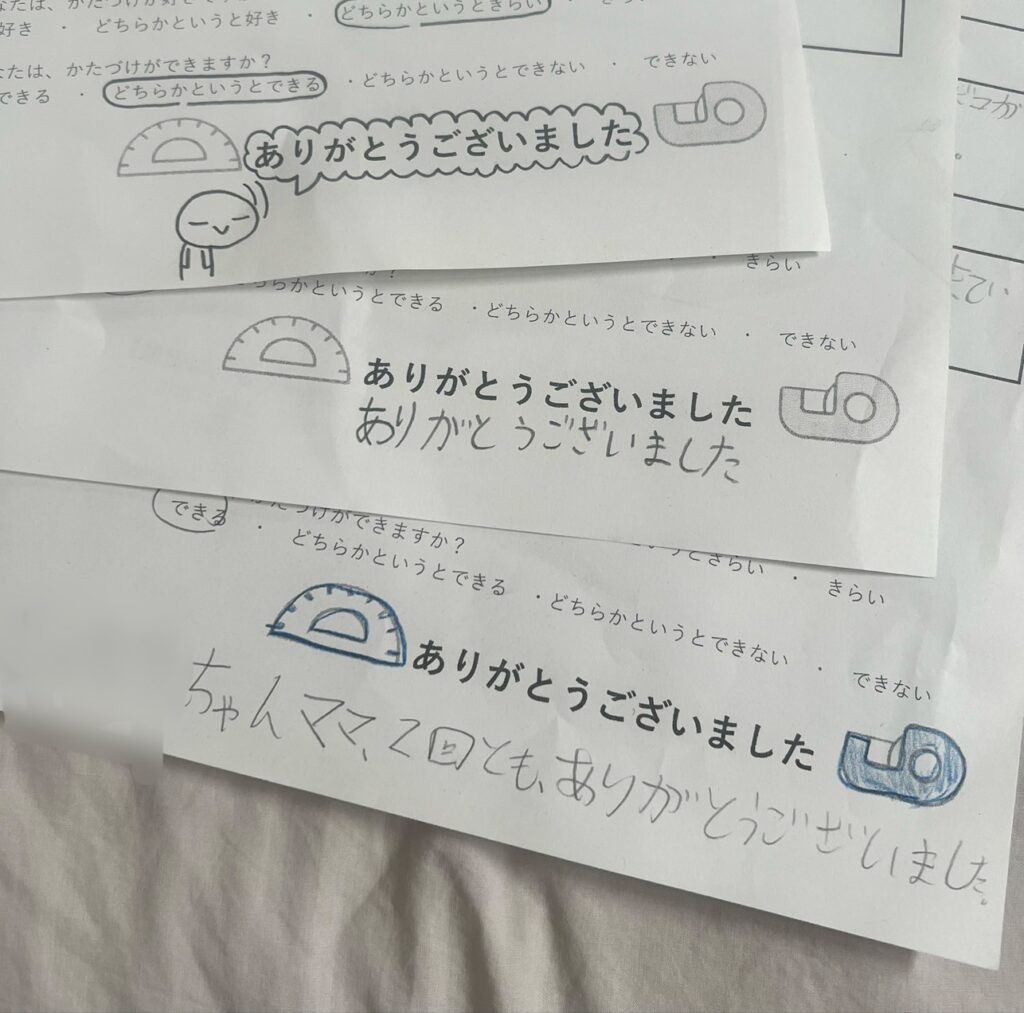 なたは、かたづけが好きです
好き ・ どちらかというと好き ・ どちらかというときらい ・
なたは、かたづけができますか？
できる ・ どちらかというとできる ・どちらかというとできない ・ できない
ありがとうございました
きらい
か？
どちらかというとできる ・どちらかというとできない ・ できない
ありがとうございました
ありがとうございました
かたづけができますか？
いうときらい ・ きらい
できる ・ どちらかというとできる ・どちらかというとできない ・ できない
ありがとうございました
ちゃんママ、2回とも、ありがとうございました。